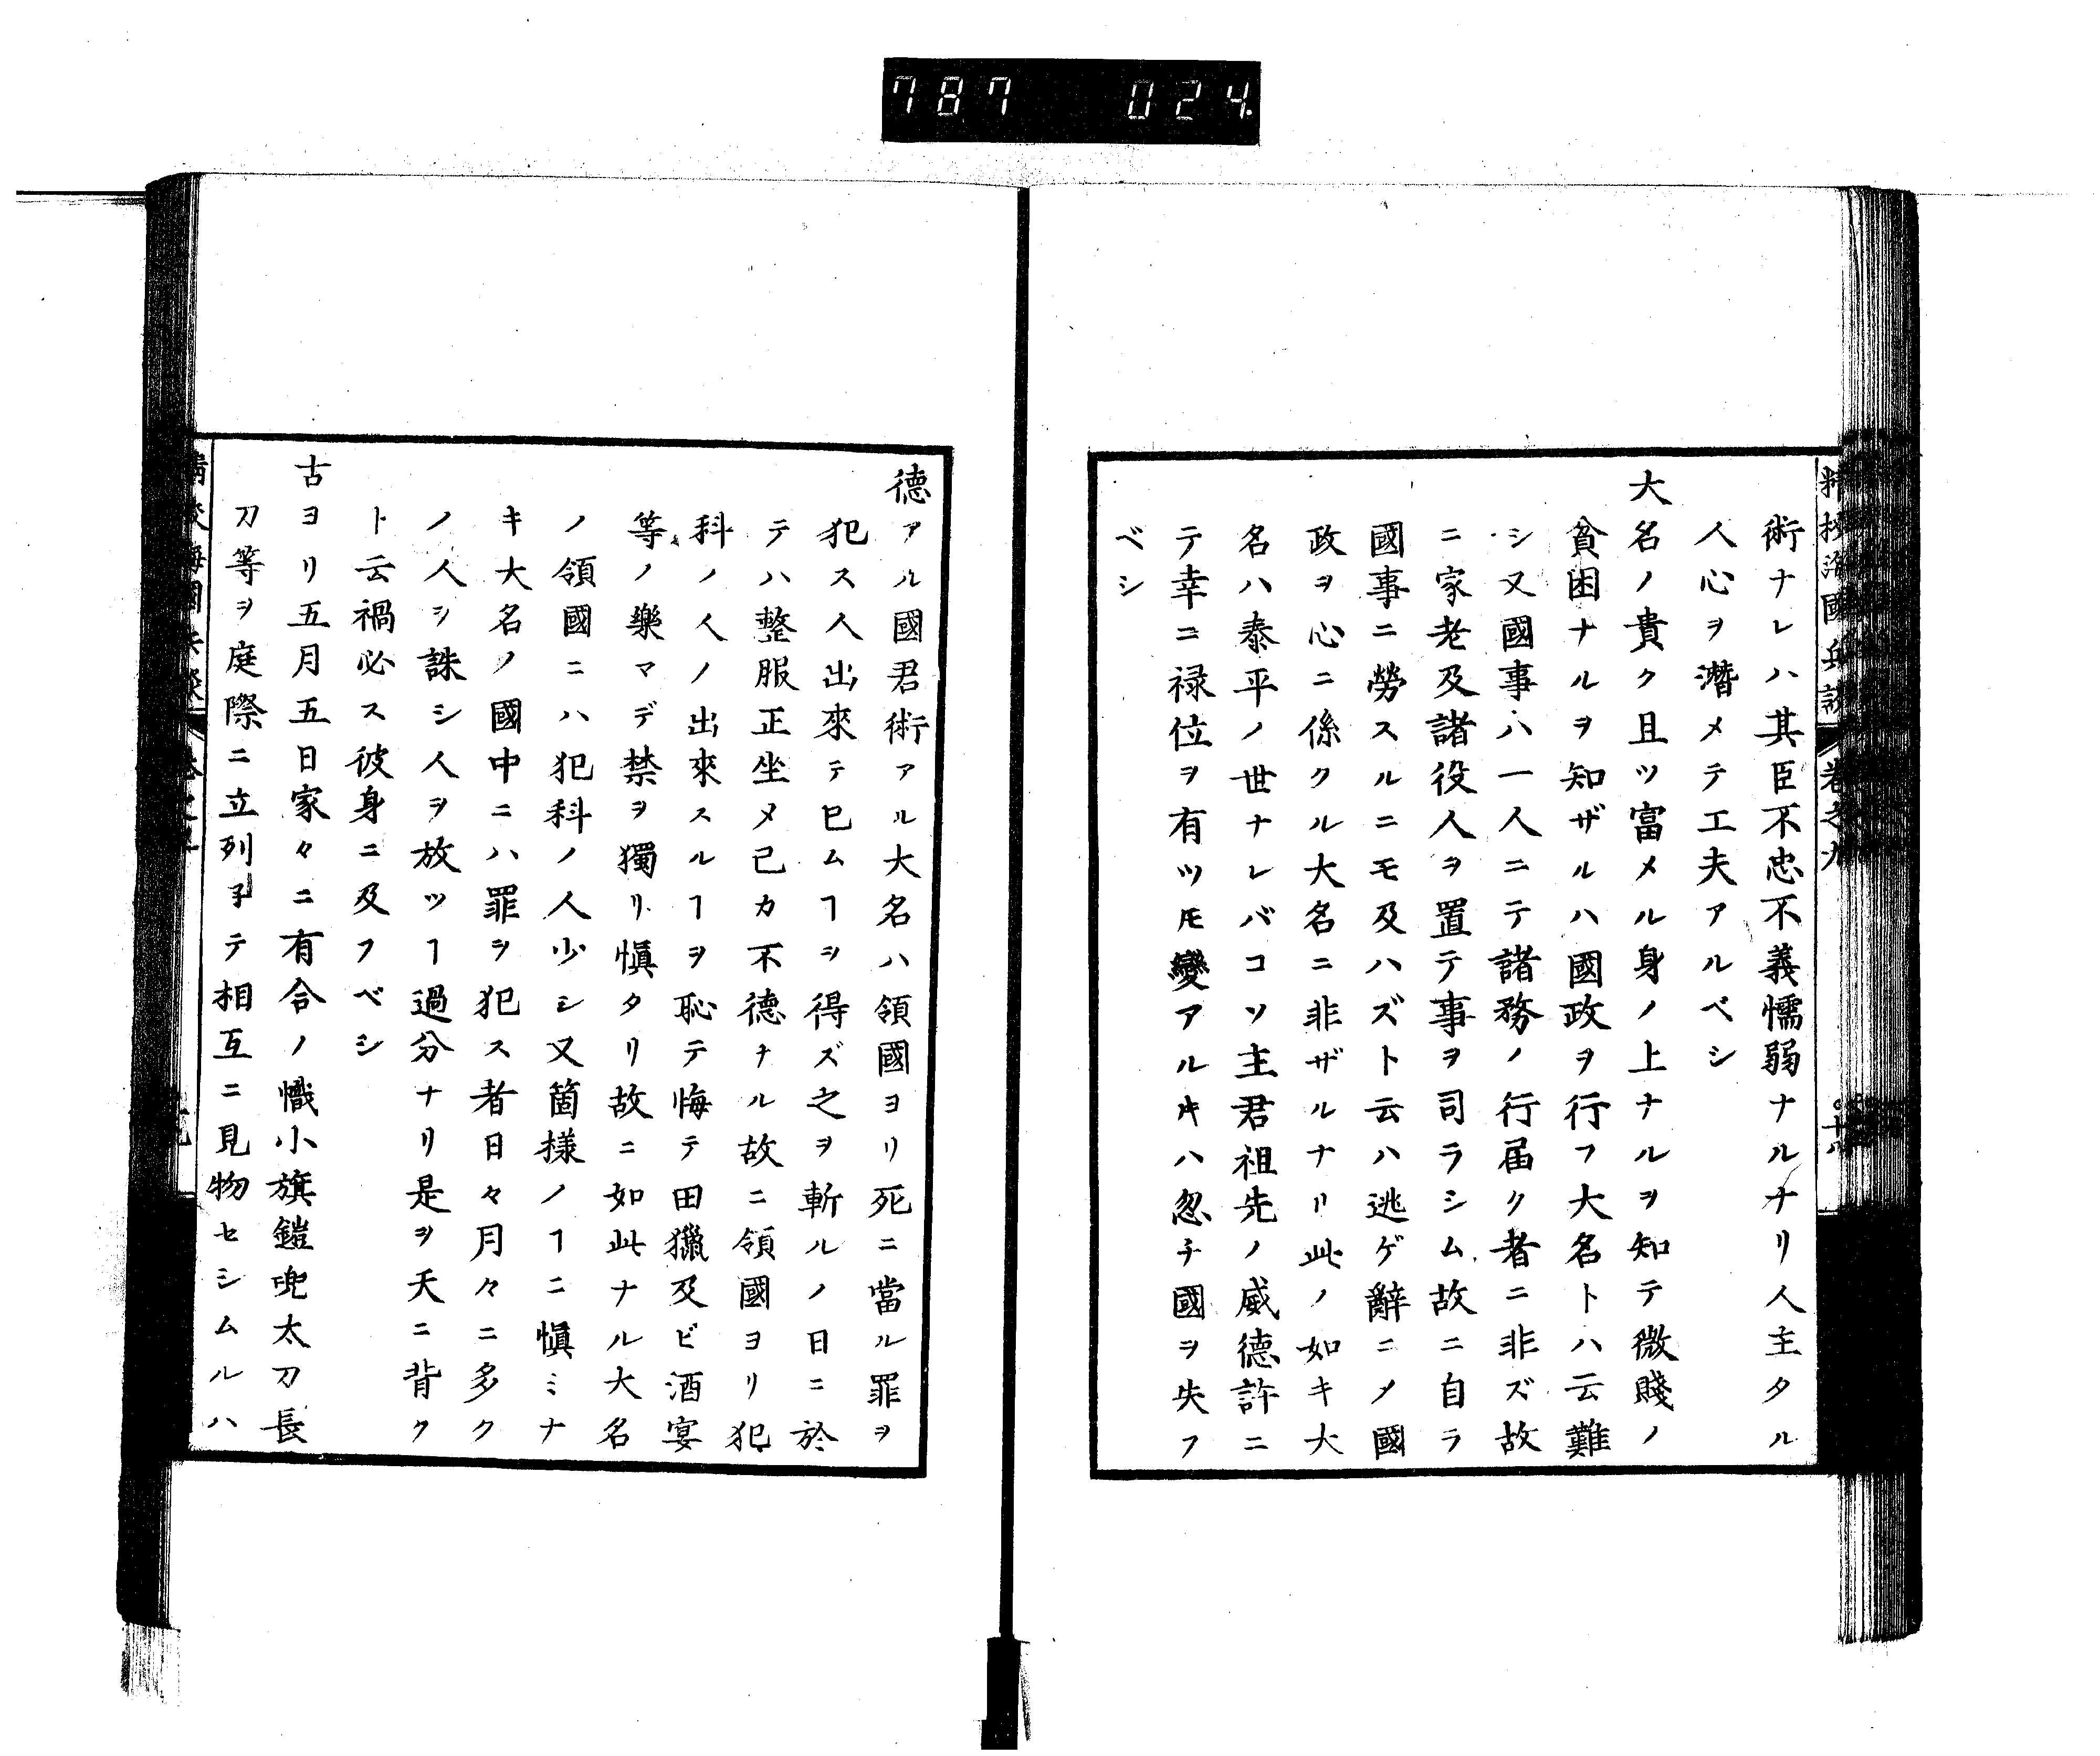 787 024
術ナレハ其臣不忠不義懦弱ナルナリ人主タル
人心ヲ潛メテ工夫アルベシ
大名ノ貴ク且ツ富メル身ノ上ナルヲ知テ微賤ノ
貧困ナルヲ知ザルハ國政ヲ行フ大名トハ云難
シ又國事ハ一人ニテ諸務ノ行届ク者ニ非ズ故
ニ家老及諸役人ヲ置テ事ヲ司ラシム故ニ自ラ
國事ニ勞スルニモ及ハズト云ハ逃ゲ辭ニメ國
政ヲ心ニ係クル大名ニ非ザルナリ此ノ如キ大
名ハ泰平ノ世ナレバコソ主君祖先ノ威德許ニ
テ幸ニ禄位ヲ有ツ𪜈變アルキハ忽チ國ヲ失フ
ベシ
德アル國君術アル大名ハ領國ヨリ死ニ當ル罪ヲ
犯ス人出來テ已ムヿヲ得ズ之ヲ斬ルノ日ニ於
テハ整服正坐メ己カ不德ナル故ニ領國ヨリ犯
科ノ人ノ出來スルヿヲ恥テ悔テ田獵及ビ酒宴
等ノ樂マデ禁ヲ獨リ愼タリ故ニ如此ナル大名
ノ領國ニハ犯科ノ人少シ又箇様ノヿニ愼ミナ
キ大名ノ國中ニハ罪ヲ犯ス者日々月々ニ多ク
ノ人ヲ誅シ人ヲ放ツヿ過分ナリ是ヲ天ニ背ク
ト云禍必ス彼身ニ及フベシ
古ヨリ五月五日家々ニ有合ノ幟小旗鎧兜太刀長
刀等ヲ庭際ニ立列子テ相互ニ見物セシムルハ